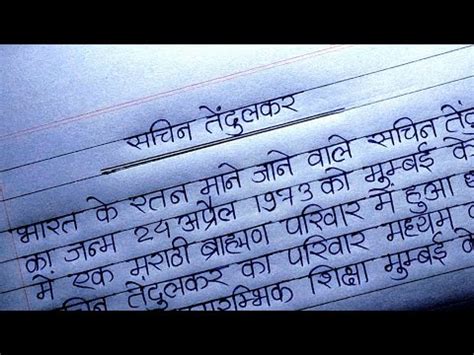 सचिन तेंदुलकर
भारत के रतन माने जाने वाले सचिन
का जन्म 24 अप्रैल 1973 को मुम्बई के
में एक मराठी ब्राह्मण परिवार में हुआ
तेंदुलकर का परिवार मध्यम
शिक्षा मुम्बई के